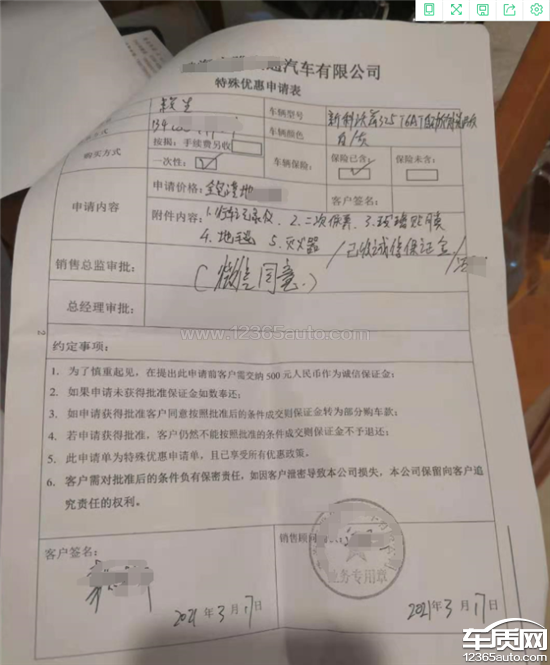 汽车有限公司
特殊优惠申请表
车辆型号
车辆颜色
购买方式
按揭：手续费另收
一次性：
车辆保险：
保险已含：
保险未含：
申请内容
申请价格：
客户签名：
附件内容：1.行车记录仪、2.二次保养、3.玻璃贴膜
4.地毯 5.灭火器 /已收诚信保证金/
销售总监审批：
（微信同意）
总经理审批：
www.12365auto.com
约定事项：
1. 为了慎重起见，在提出此申请前客户需交纳 500 元人民币作为诚信保证金；
2. 如果申请未获得批准保证金如数奉还；
3. 如申请获得批准客户同意按照批准后的条件成交则保证金转为部分购车款；
4. 若申请获得批准，客户仍然不能按照批准的条件成交则保证金不予退还；
5. 此申请单为特殊优惠申请单，且已享受所有优惠政策。
6. 客户需对批准后的条件负有保密责任，如因客户泄密导致本公司损失，本公司保留向客户追
究责任的权利。
客户签名：
销售顾问
业务专用章
2021年3月17日
2021年3月17日
车质网
12365auto.com